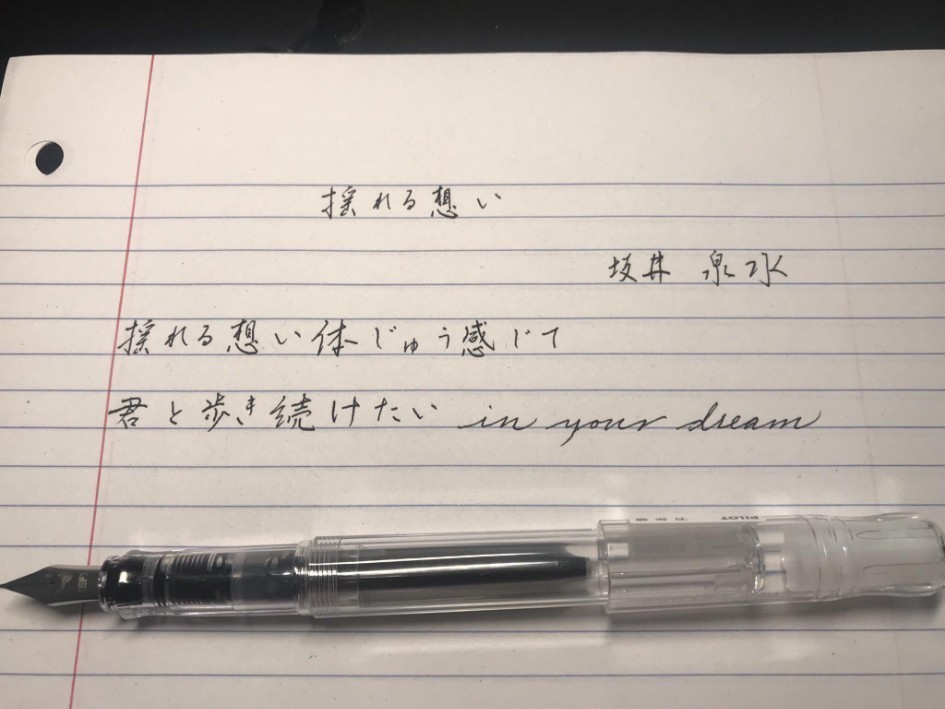 揺れる想い
坂井 泉水
揺れる想い体じゅう感じて
君と歩き続けたい in your dream
PILOT